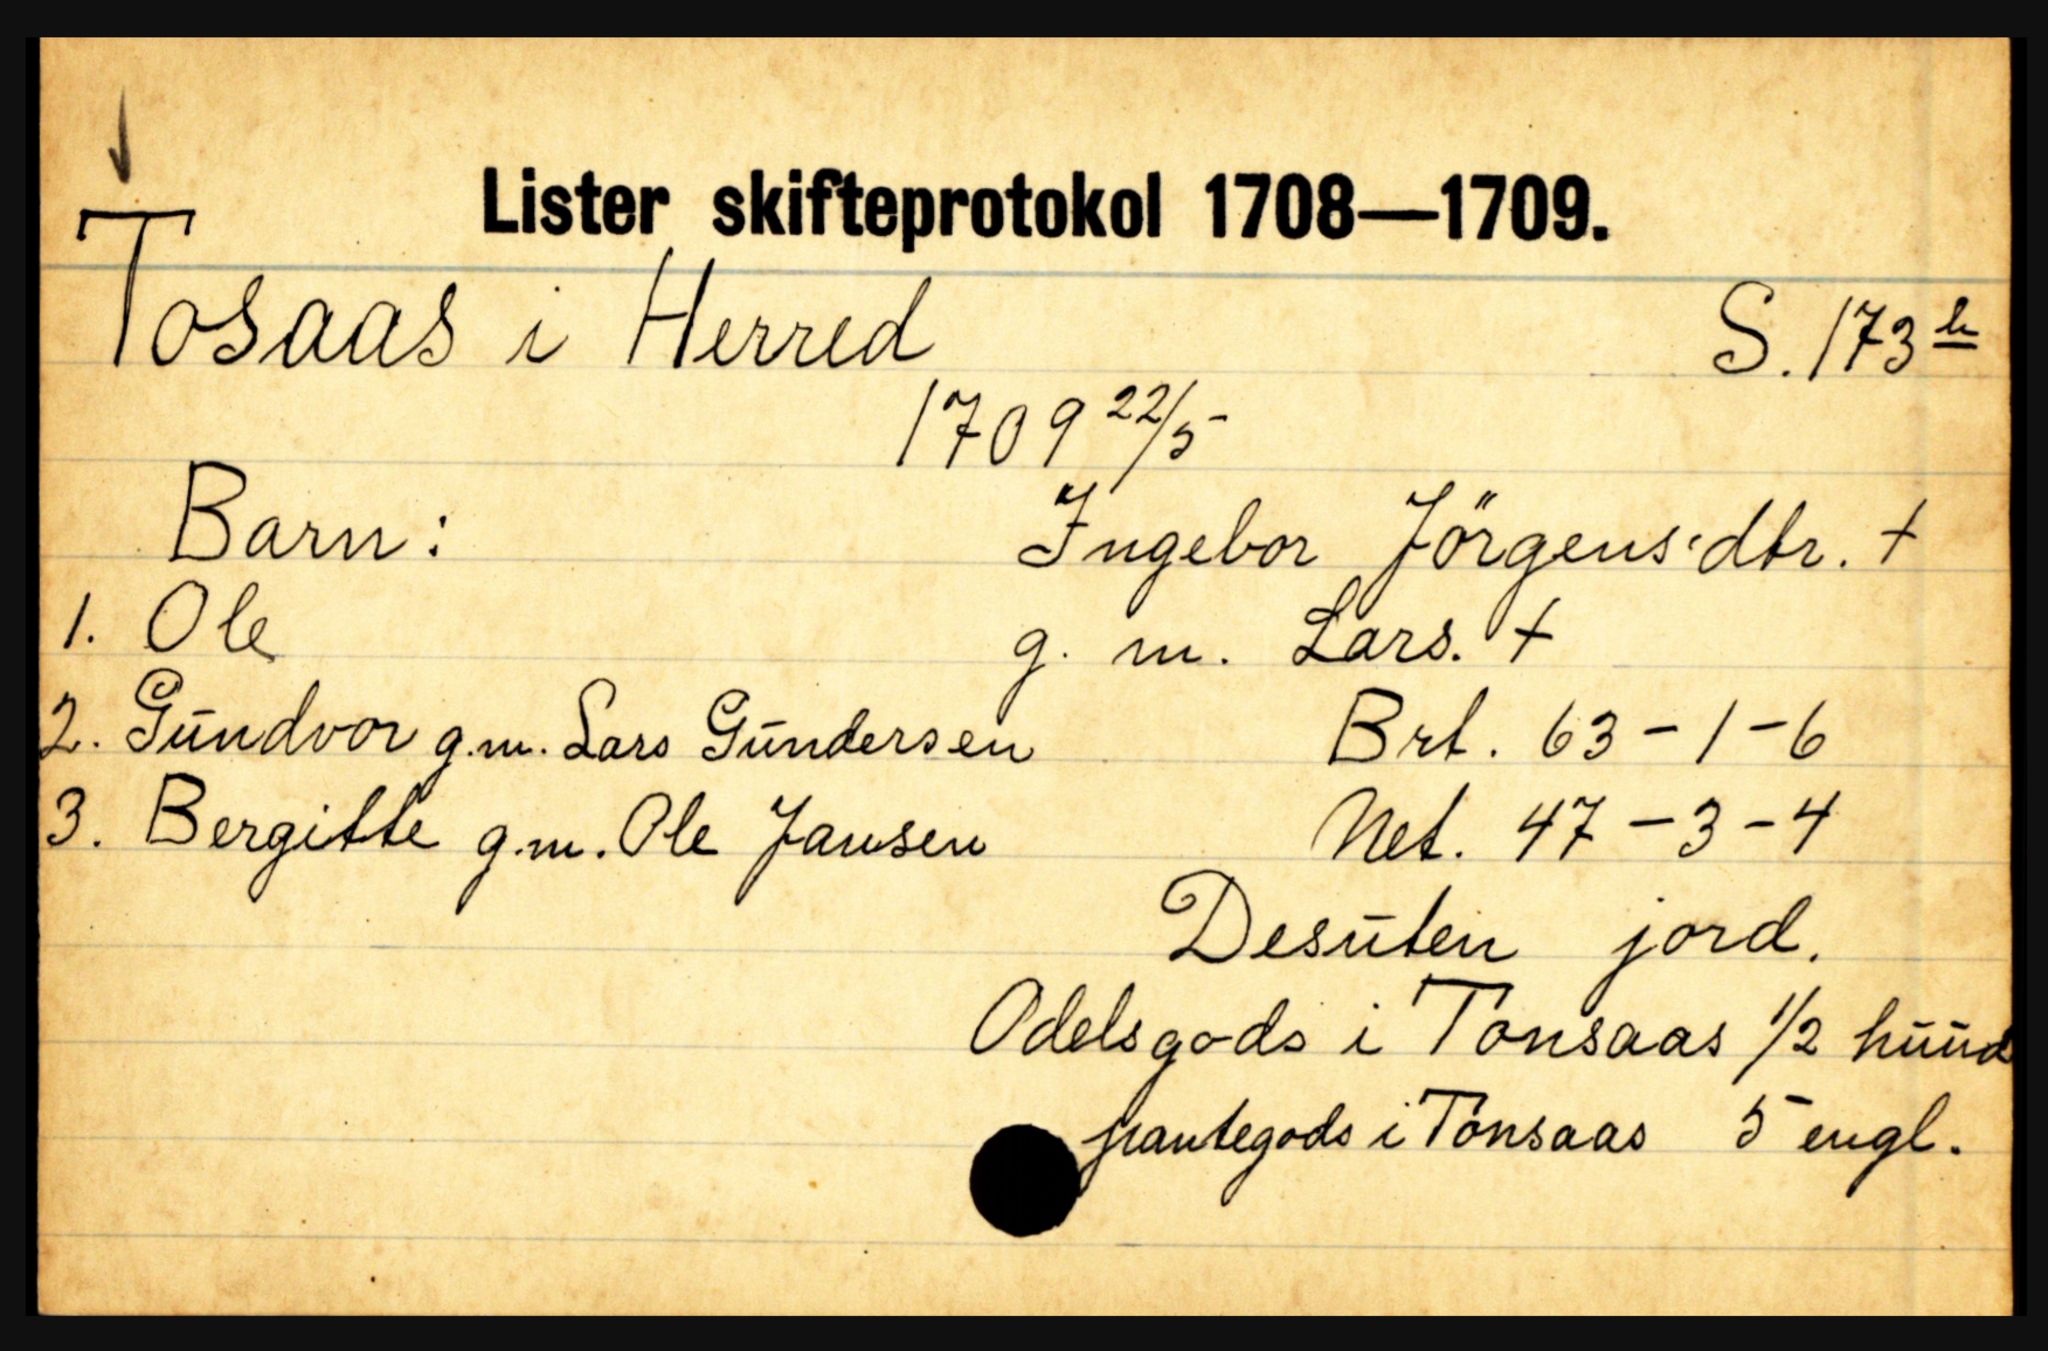 Lister skifteprotokol 1708—1709.
Tosaas i Herred S. 173 b
1709 22/5
Barn: Ingebor Jörgensdtr. +
1. Ole g. m. Lars. +
2. Gundvor g.m. Lars Gundersen Brt. 63-1-6
3. Bergitte g.m. Ole Jansen Net. 47-3-4
Desuten jord.
Odelsgods i Tonsaas 1/2 huud
pantegods i Tonsaas 5 engl.